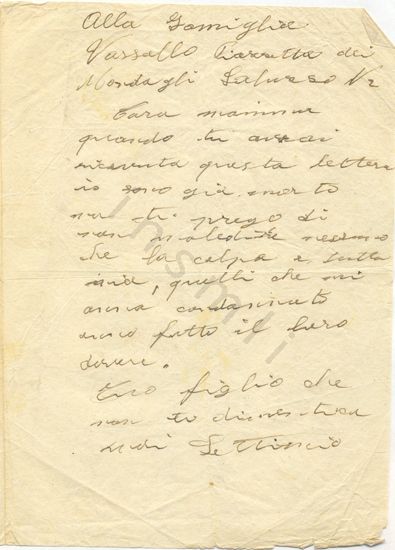 Alla Famiglia
Vassallo Piazzetta dei
Mondagli Saluzzo N 2
Cara mamma
quando tu avrai
ricevuta questa lettera
io sono già morto
ma ti prego di
non maledire nessuno
che la colpa e tutta
mia, quelli che mi
anno condannato
anno fatto il loro
dovere.
Tuo figlio che
non ti dimentica
mai Settimio
Insmli